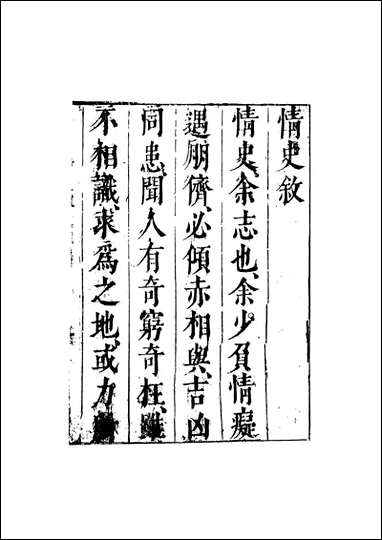 情史敘
情史、余志也、余少負情癡、
遇朋儕、必傾赤相與、吉凶
同患、聞人有奇窮奇枉、雖
不相識、求爲之地、或力